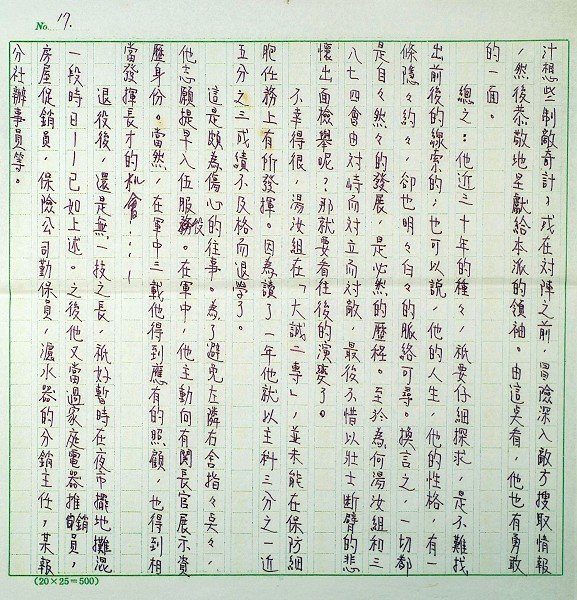 No. 17.
汁想些制敵奇計，或在対陣之前，冒險深入敵方搜取情報
，然後恭敬地呈獻給本派的領袖。由這点看，他也有勇敢
的一面。
總之：他近三十年的種々，祇要仔細探求，是不難找
出前後的線索的，也可以說，他的人生，他的性格，有一
條隱々約々，卻也明々白々的脈絡可尋。換言之，一切都
是自々然々的發展，是必然的歷程。至於為何湯汝組和三
八七四會由対峙而対立而対敵，最後不惜以壯士断臂的悲
懷出面檢舉呢？那就要看往後的演变了。
不幸得很，湯汝組在「大誠二專」，並未能在保防細
胞任務上有所發揮。因為讀了一年他就以主科三分之一近
五分之三成績不及格而退學了。
這是頗為傷心的往事。為了避免左隣右舍指々点々，
他志願提早入伍服役。在軍中，他主動向有関長官展示資
歷身份。當然，在軍中三載他得到應有的照顧，也得到相
當發揮長才的机會！……
退役後，還是無一技之長，祇好暫時在夜市擺地攤混
一段時日——已如上述。之後他又當過家庭電器推銷員，
房屋促銷員，保險公司勤保員，濾水器的分銷主任，某報
分社辦事員等。
(20×25=500)